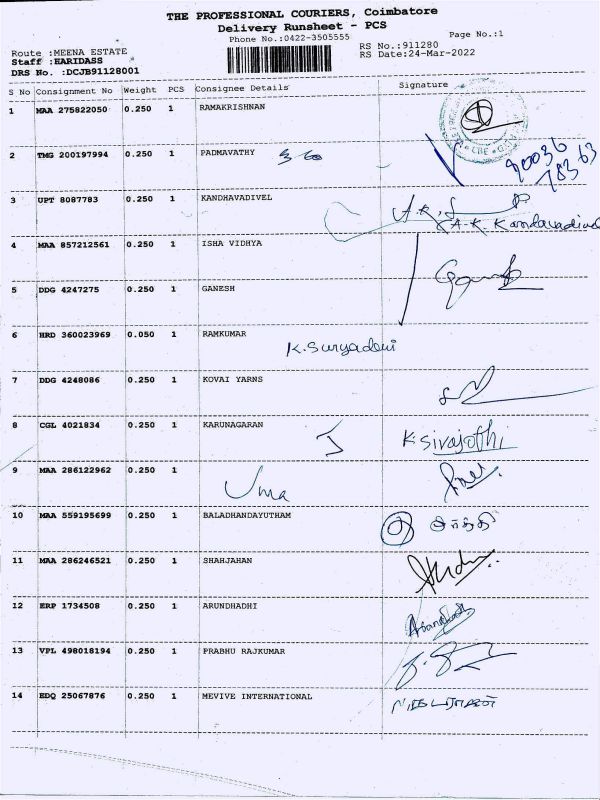 THE PROFESSIONAL COURIERS, Coimbatore
Delivery Runsheet - PCS
Phone No.:0422-3505555
Page No.:1
Route :MEENA ESTATE
RS No.:911280
Staff :HARIDASS
RS Date:24-Mar-2022
DRS No. :DCJB91128001
S No Consignment No Weight PCS Consignee Details Signature
1 MAA 275822050 0.250 1 RAMAKRISHNAN
2 TMG 200197994 0.250 1 PADMAVATHY
90036
78363
3 UPT 8087783 0.250 1 KANDHAVADIVEL
A.K. Kandavadivel
4 MAA 857212561 0.250 1 ISHA VIDHYA
5 DDG 4247275 0.250 1 GANESH
6 HRD 360023969 0.050 1 RAMKUMAR
K. Suryadevi
7 DDG 4248086 0.250 1 KOVAI YARNS
8 CGL 4021834 0.250 1 KARUNAGARAN K. Sivajothi
9 MAA 286122962 0.250 1 Uma
10 MAA 559195699 0.250 1 BALADHANDAYUTHAM
11 MAA 286246521 0.250 1 SHAHJAHAN
12 ERP 1734508 0.250 1 ARUNDHADHI
13 VPL 498018194 0.250 1 PRABHU RAJKUMAR
14 EDQ 25067876 0.250 1 MEVIVE INTERNATIONAL